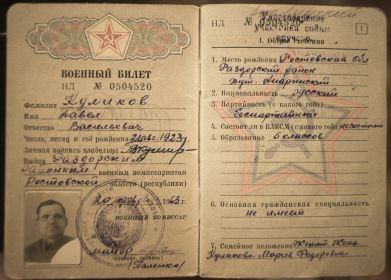 ВОЕННЫЙ БИЛЕТ
НД № 0504520
Фамилия Куликов
Имя Павел
Отчество Васильевич
Число, месяц и год рождения 21 авг. 1923 г.
Личная подпись владельца
Выдан Раздорским
районным военным комиссариатом
Ростовской области (республики)
1963 г.
ВОЕННЫЙ КОМИССАР
майор
НД № 0504520
Удостоверение
участника войны
1
I. Общие сведения
1. Место рождения Ростовская обл
Раздорский район
хут.
2. Национальность русский
3. Партийность (с какого года)
беспартийный
4. Состоит ли в ВЛКСМ (с какого года) не состоит
5. Образование 5 классов
6. Основная гражданская специальность
не имеет
7. Семейное положение Женат жена
Куликова Мария Федоровна